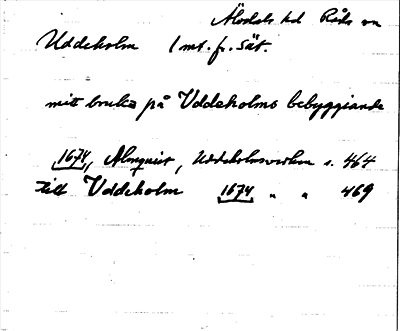 Älvdals hd Råda sn
Uddeholm 1 mt. fr. Sät.
mitt bruks på Uddeholms bebyggiande
1674, Almquist, Uddeholmsverken s. 464
till Uddeholm 1674 " " 469